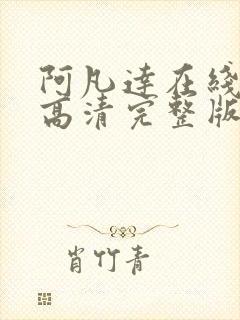 阿凡达在线
高清完整版
肖竹青